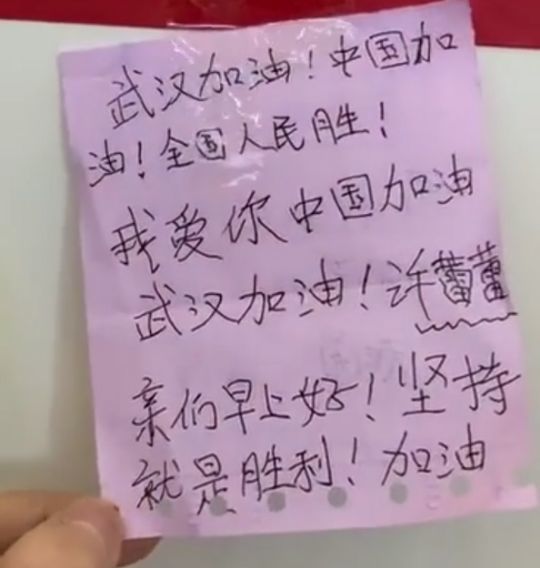 武汉加油！中国加
油！全国人民胜！
我爱你中国加油
武汉加油！许蕾蕾
亲们早上好！坚持
就是胜利！加油